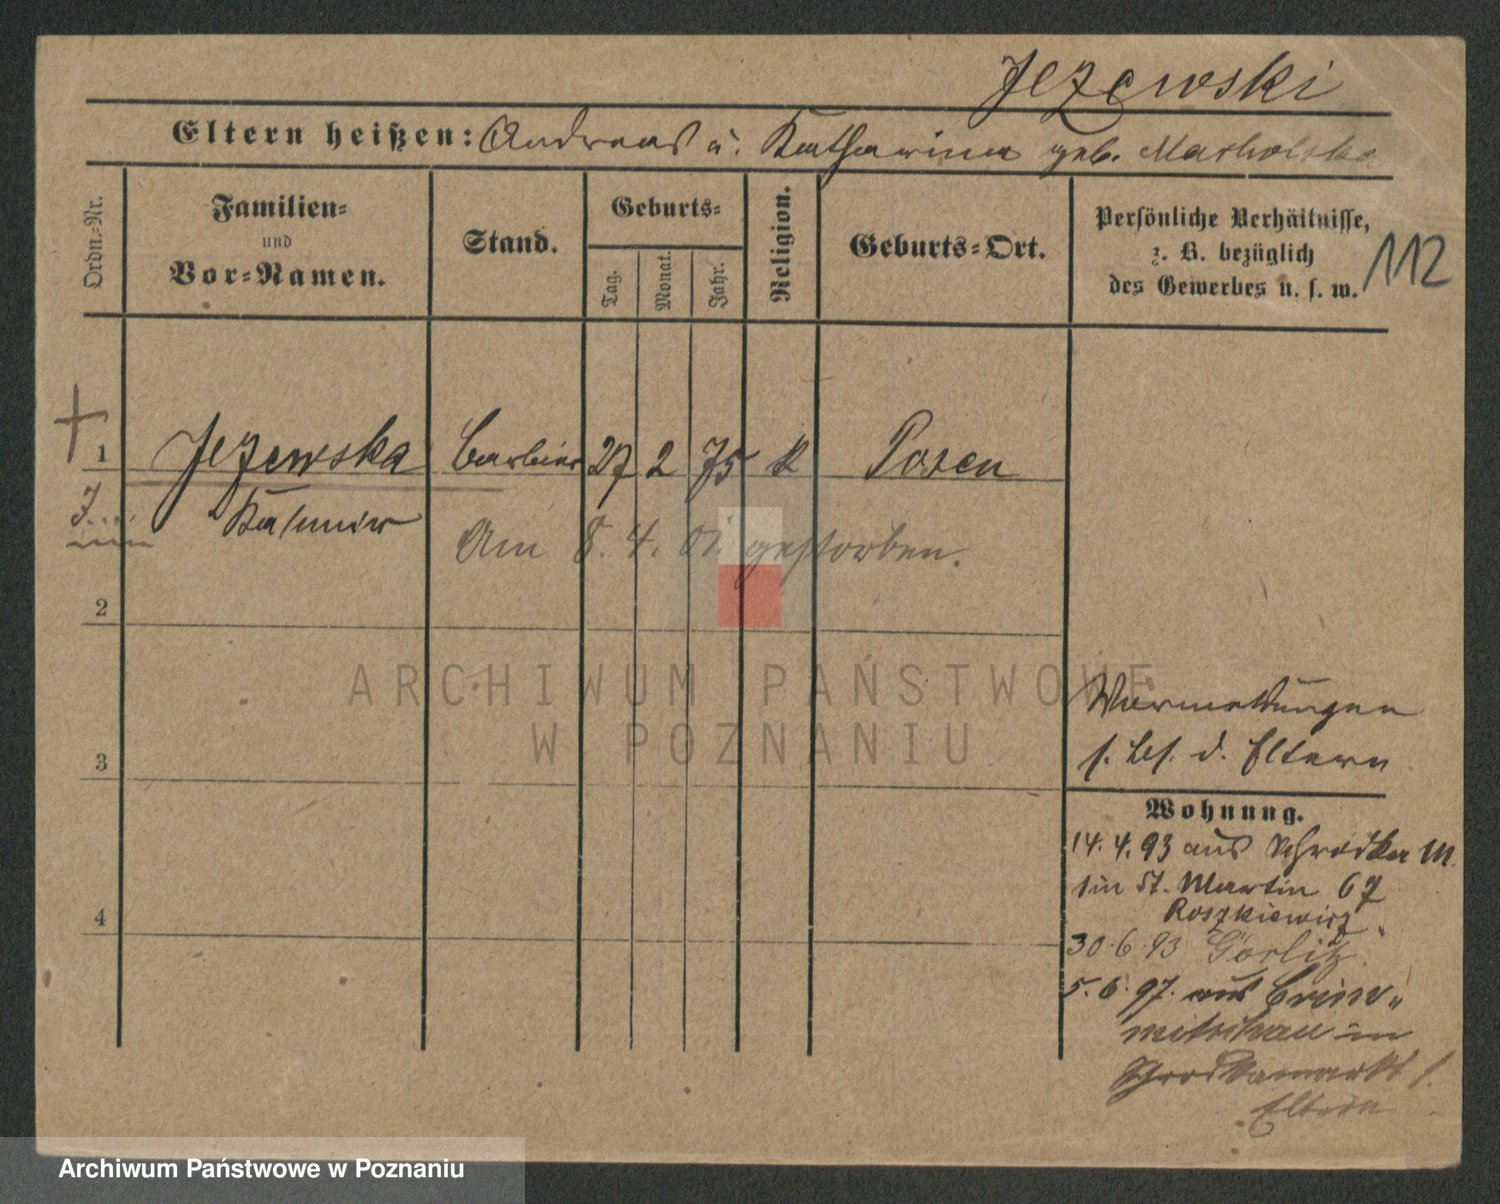 Jezewski
Eltern heißen: Andreas u. Katharina geb. Marholska
Ordn.-Nr.
Familien-
und
Vor-Namen.
Stand.
Geburts-
Tag.
Monat.
Jahr.
Religion.
Geburts-Ort.
Persönliche Verhältnisse,
z. B. bezüglich
des Gewerbes u. s. w.
112
1 Jezewska Barbier 27 2 75 K Posen
Kasimir
Am 8. 4. 01. gestorben.
2
3
4
ARCHIWUM PAŃSTWOWE
W POZNANIU
s. bs. d. Eltern
Wohnung.
14. 4. 93 aus Schrodka M.
in St. Martin 67
Roszkiewicz
30. 6. 93 Görlitz
5. 6. 97. aus Crim-
mitschau in
Schrodkamarkt
Eltern
Archiwum Państwowe w Poznaniu